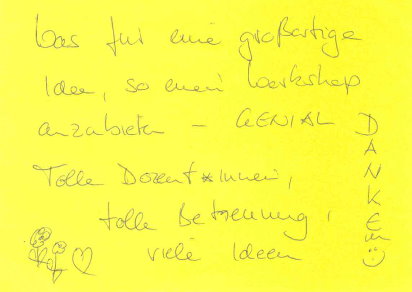 Was für eine großartige
Idee, so einen Workshop
anzubieten – GENIAL
Tolle Dozent*innen,
tolle Betreuung,
viele Ideen
DANKE :)